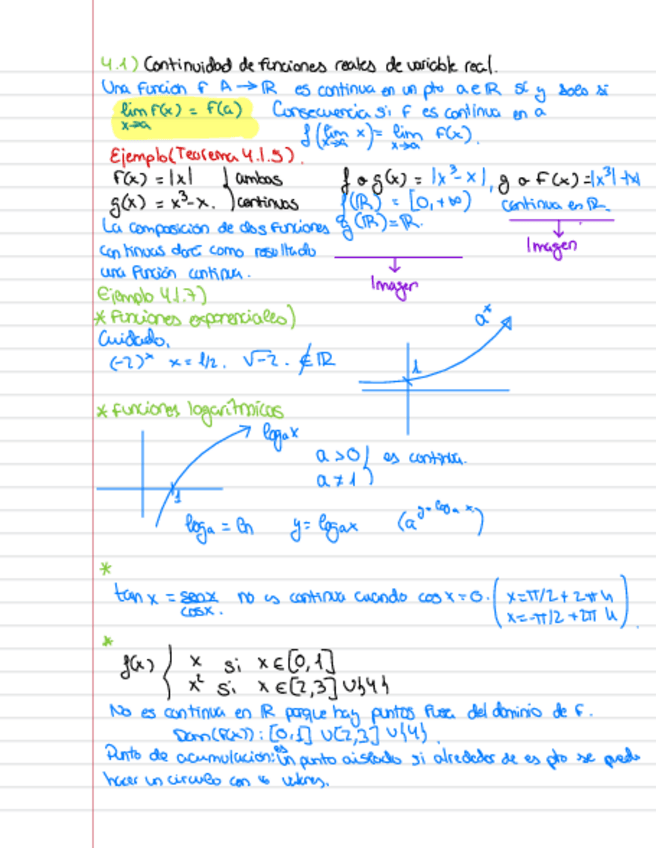 4.1) Continuidad de funciones reales de variable real.
Una función f A→ℝ es continua en un pto a∈ℝ sí y solo si
lim f(x) = f(a) Consecuencia si f es continua en a
x→a
f(lim x) = lim f(x).
x→a x→a
Ejemplo (Teorema 4.1.5).
f(x) = |x| } ambas f o g(x) = |x³-x|, g o f(x) = |x³|-|x|
g(x) = x³-x. } continuas f(ℝ) = [0,+∞) continua en ℝ.
La composición de dos funciones g(ℝ)=ℝ.
continuas dará como resultado Imagen
una función continua. Imagen
Ejemplo 4.1.7)
* Funciones exponenciales)
Cuidado, aˣ
(-2)ˣ x = 1/2. √-2. ∉ ℝ 1
* Funciones logarítmicas
logₐx
a>0 } es continua.
a≠1 }
1
logₐ = ln y = logₐx
*
tan x = senx/cosx. no es continua cuando cos x=0. (x=π/2+2πk
x=-π/2+2πk)
*
f(x) { x si x∈[0,1]
x² si x∈[2,3]∪{4}
No es continua en ℝ porque hay puntos fuera del dominio de f.
Dom(f(x)): [0,1]∪[2,3]∪{4}.
Punto de acumulación: es un punto aislado si alrededor de es pto se puede
hacer un círculo con valores.